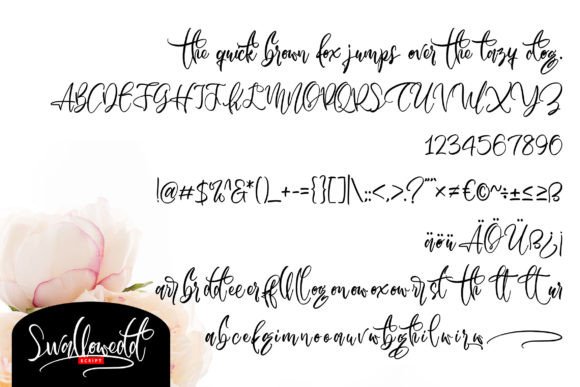 the quick brown fox jumps over the lazy dog.
ABCDEFGHIJKLMNOPQRSTUVWXYZ
1234567890
!@#$%^&*()_+-={}[]|\;:<,>.?~¨¨×≠€©~÷±≤≥ß
äöü ÄÖÜß¿¡
arr br dd ee er ff ll ll og on ow ox ow rr st th tt tt ur
abcdefgimnooauvwbghilwirw
Swallowedd
SCRIPT